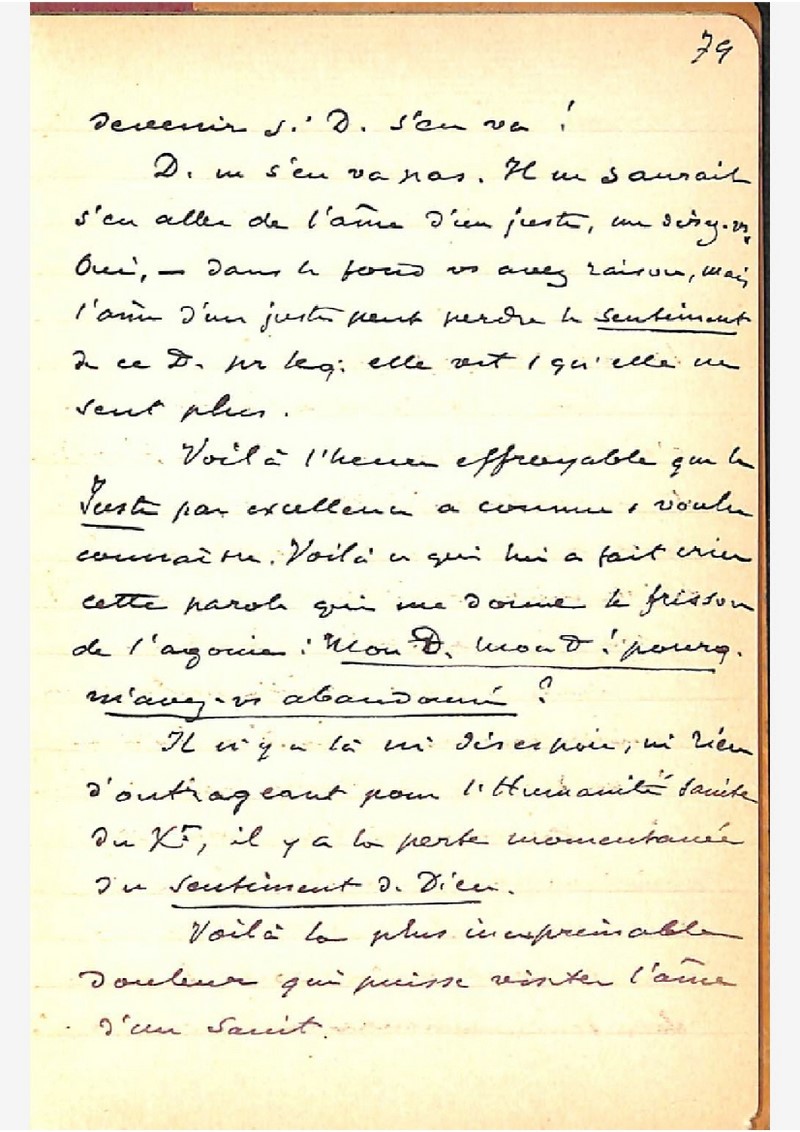 79
devenir si D. s'en va !
D. ne s'en va pas. Il ne saurait
s'en aller de l'âme d'un juste, me direz-vs,
Oui, — dans le fond vs avez raison, mais
l'âme d'un juste peut perdre le sentiment
de ce D. pr leq. elle vit & qu'elle ne
sent plus.
Voilà l'heure effroyable que le
Juste par excellence a connue & voulu
connaître. Voilà ce qui lui a fait crier
cette parole qui me donne le frisson
de l'agonie : Mon D. mon D ! pourq.
m'avez-vs abandonné ?
Il n'y a là ni désespoir, ni rien
d'outrageant pour l'Humanité sainte
du Xt, il y a la perte momentanée
du sentiment de Dieu.
Voilà la plus inexprimable
douleur qui puisse visiter l'âme
d'un Saint.